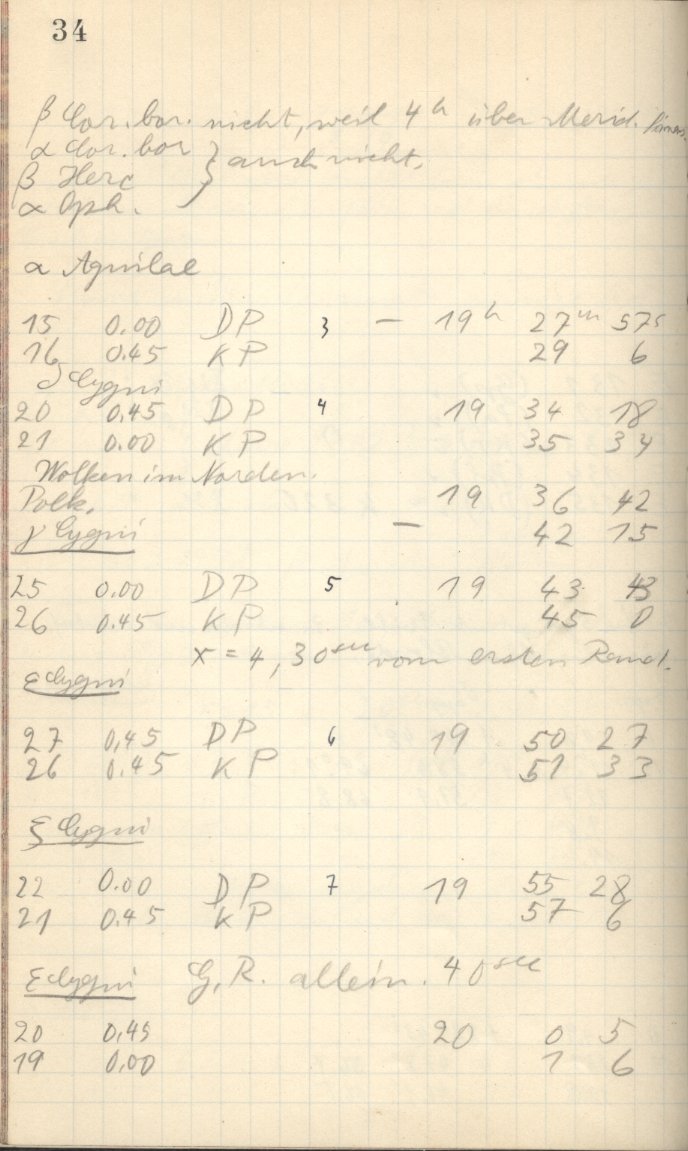 34
β Cor. bor. nicht, weil 4h über Merid.
α Cor. bor
β Herc } auch nicht.
α Oph.
α Aquilae
15 0.00 DP 3 — 19h 27m 57s
16 0.45 KP 29 6
δ Cygni
20 0.45 DP 4 19 34 18
21 0.00 KP 35 34
Wolken im Norden.
Polk. 19 36 42
γ Cygni — 42 15
25 0.00 DP 5 19 43 43
26 0.45 KP 45 0
x = 4, 30sec vom ersten
ε Cygni
27 0.45 DP 6 19 50 27
26 0.45 KP 51 33
ξ Cygni
22 0.00 DP 7 19 55 28
21 0.45 KP 57 6
ε Cygni G.R. allein. 40sec
20 0.45 20 0 5
19 0.00 1 6